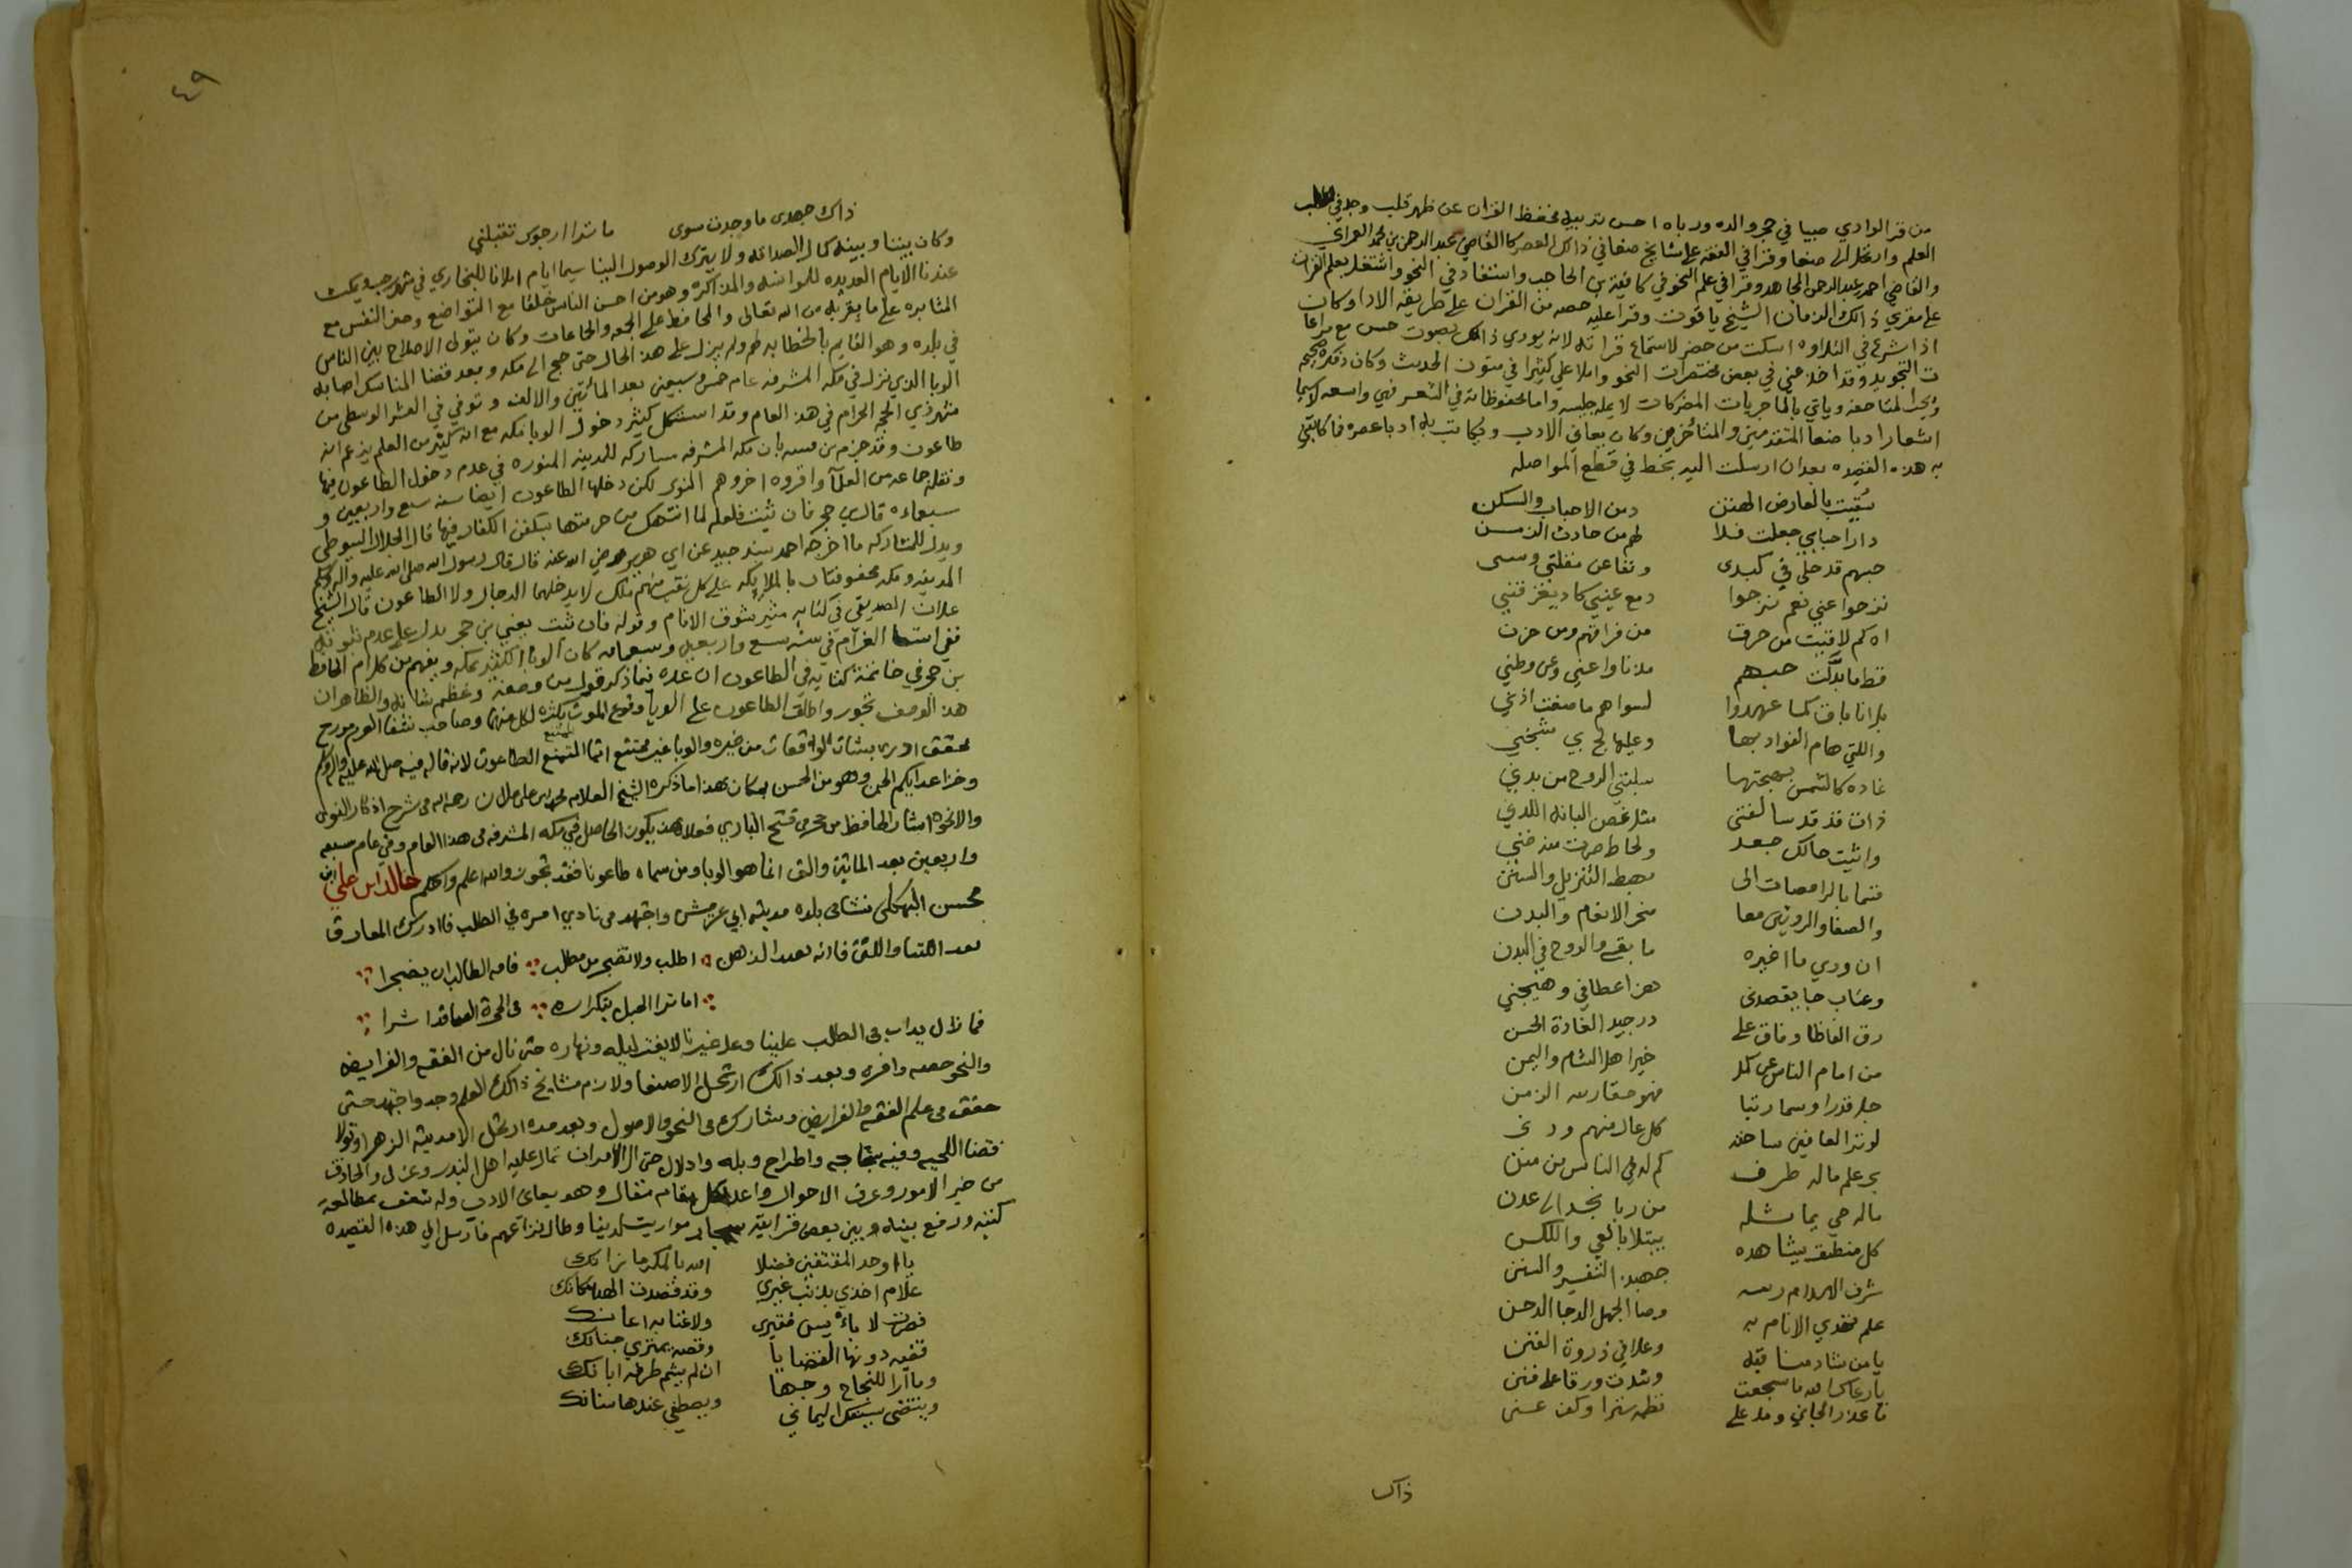 من قرا الوادي صبيا في حجر والده ورباه احسن تربيه فحفظ القران عن ظهر قلب وجد في طلب
العلم وارتحل الى صنعا وقرا في الفقه على مشايخ صنعا في ذالك العصر كالقاضي عبد الرحمن بن محمد العمراني
والقاضي احمد بن عبد الرحمن المجاهد وقرا في علم النحو في كافية بن الحاجب واستفاد في النحو واشتغل بعلم القران
على مقري ذالك الزمان الشيخ ياقوت وقرا عليه حصه من القران على طريقه الادا وكان
اذا شرع في التلاوه اسكت من حضر لاستماع قراته لانه يودي ذالك بصوت حسن مع مراعا
ت التجويد وقد اخذ عني في بعض مختصرات النحو واملا علي كثيرا في متون الحديث وكان
ويات بالماجريات المضحكات لا يمله جليسه واما محفوظاته في الشعر فهي واسعه لا سيما
اشعار ادبا صنعا المتقدمين والمتاخرين وكان يعاني الادب ويكاتب به ادبا عصره فما كاتبني
به هذه القصيده بعد ان ارسلت اليه بخط في قطع المواصله
سقيت بالعارض الهتن دمن الاحباب والسكن
دار احبابي جعلت فلا لهم من حادث الزمن
حبهم قد حل في كبدي ونفا عن مقلتي وسني
نزحوا عني نعم نزحوا دمع عيني كاد يغرقني
اه كم لاقيت من حرق من فراقهم ومن حزن
قط ما بدلت حبهم مذ ناوا عني وعن وطني
بل انا باق كما عهدوا لسواهم ما صغت اذني
واللتي هام الفواد بها وعليها لج بي شجني
غاده كالشمس بهجتها سلبتني الروح من بدني
ذات قد قد سالفتي مثل غصن البانه اللدن
واثيث حالك جعد ولحاظ
قسما بالراقصات الى مهبط التنزيل والسنن
والصفا والمروتين معا منحر الانعام والبدن
ان ودي ما اغيره ما بقى والروح في البدن
وعتاب جا يقصدني هز اعطافي وهيجني
رق الفاظا وفاق على در جيد الغادة الحسن
من امام الناس عن كمل خير اهل الشام واليمن
جل قدرا وسما رتبا فهو حقا زينه الزمن
لو ترا العافين ساحته كل عال منهم ودني
بحر علم ماله طرف كم له في الناس من منن
ماله في يماثله من ربا نجد الى عدن
كل منطيق يشاهده يبتلا بالعي واللكن
جهبذ التفسير والسنن
علم تهدي الانام به ومحا الجهل الدجا الدجن
يا من شاد مناقبه وعلا في ذروة القنن
يا رعاك الله ما سجعت وشدت ورقا على فنن
فاعذر الجاني ومد على نظمه سترا وكف عني
ذاك
٤٩
ذاك جهدي ما وجدت سوى ما ترا ارجوك تقبلني
وكان بيننا وبينه كمال الصداقه ولا يترك الوصول الينا سيما ايام املانا للبخاري في شهر رجب ويمكث
عندنا الايام العديده للموانسه والمذاكره وهو من احسن الناس خلقا مع التواضع وهضم النفس مع
المثابره على ما يقربه من الله تعالى والمحافظ على الجمعه والجماعات وكان يتولى الاصلاح بين الناس
في بلده وهو القايم بالخطابه لهم ولم يزل على هذ الحال حتى حج الى مكه وبعد قضا المناسك اصابه
الوبا الذي نزل في مكه المشرفه عام خمس وسبعين بعد المائتين والالف وتوفي في العشر الوسطى من
شهر ذي الحجه الحرام في هذ العام وقد استشكل كثير دخول الوبا مكه مع ان كثير من العلم يزعم انه
طاعون وقد جزم بن قتيبه بان مكه المشرفه مشاركه للمدينه المنوره في عدم دخول الطاعون فيها
ونقله جماعه من العلما واقروه اخرهم النووي لكن دخلها الطاعون ايضا سنه سبع واربعين و
سبعمائه قال بن حجر فان ثبت فلعله لما انتهك من حرمتها بسكنى الكفار فيها قال الجلال السيوطي
ويدل للمشاركه ما اخرجه احمد بسند جيد عن ابي هريره رضي الله عنه قال قال رسول الله صلى الله عليه واله وسلم
المدينه ومكه محفوفتان بالملايكه على كل نقب منهم ملك لا يدخلهما الدجال ولا الطاعون قال الشيخ
علان الصديقي في كتابه مثير شوق الانام وقوله فان ثبت يعني بن حجر يدل على عدم ثبوته
ففي شفا الغرام في سنه سبع واربعين وسبعمائه كان الوبا الكثير بمكه ويفهم من كلام الحافظ
بن حجر في خاتمة كتابه في الطاعون ان عده فيما ذكر قول من وصفه وعظم شانه والظاهر ان
هذ الوصف تجوز واطلق الطاعون على الوبا وقوع الموت بكثره لكل منهما وصاحب شفا الغرم مورخ
محقق ادرى بشان الواقعات من غيره والوبا غير ممتنع انما الممتنع الطاعون لانه قال فيه صلى الله عليه واله وسلم
وخز اعدايكم الجن وهو من الحسن بمكان هذا ما ذكره الشيخ العلامه محمد بن علي علان رحمه الله في شرح اذكار النواوي
والا نحوه اشار الحافظ بن حجر في فتح الباري فعلا هذ يكون الحاصل في مكه المشرفه في هذ العام وفي عام سبعه
واربعين بعد المائتين والف انما هو الوبا ومن سماه طاعونا فقد تجوز والله اعلم واحكم خالد ابن علي ابن
محسن البهكلي نشا في بلده مدينه ابي عريش واجتهد في نادي امره في الطلب فادرك المعارف
اطلب ولا تضجر من مطلب فافه الطالب ان يضجرا
اما ترا الحبل بتكراره في الصخرة الصما قد اثرا
فما زال يداب في الطلب علينا وعلى غيرنا لا يفتر ليله ونهاره حتى نال من الفقه والفرايض
والنحو حصه وافره وبعد ذالك ارتحل الا صنعا ولازم مشايخ ذالك العلم وجد واجتهد حتى
حقق في علم الفقه والفرايض وشارك في النحو والاصول وبعد مده ارتحل الا مدينه الزهرا وتولا
قضا اللحيه وفيه واطراح وبله وادلال حتى ال الامر ان تمالا عليه اهل البندر وعزل والحاذق
من خبر الامور وعرف الاحوال واعد لكل مقام مقال وهو يعاني الادب وله شغف بمطالعة
كتبه ورفع بينه وبين بعض قرابته مواريث لدينا وطال نزاعهم فارسل الي هذه القصيده
يا اوحد المفتقين فضلا الله بالمكرما زانك
علام اخذي بذنب غيري وقد قصدت الهدا مكانك
فصرت لا باس يسن فقيري ولا غنا به اعانك
فقيه دونها القضايا وقصه يمتري جنانك
وما ارا للنجاح وجها ان لم يشم طرفه ابانك
وينتضي سيفك اليماني ويصطفي عندها سنانك